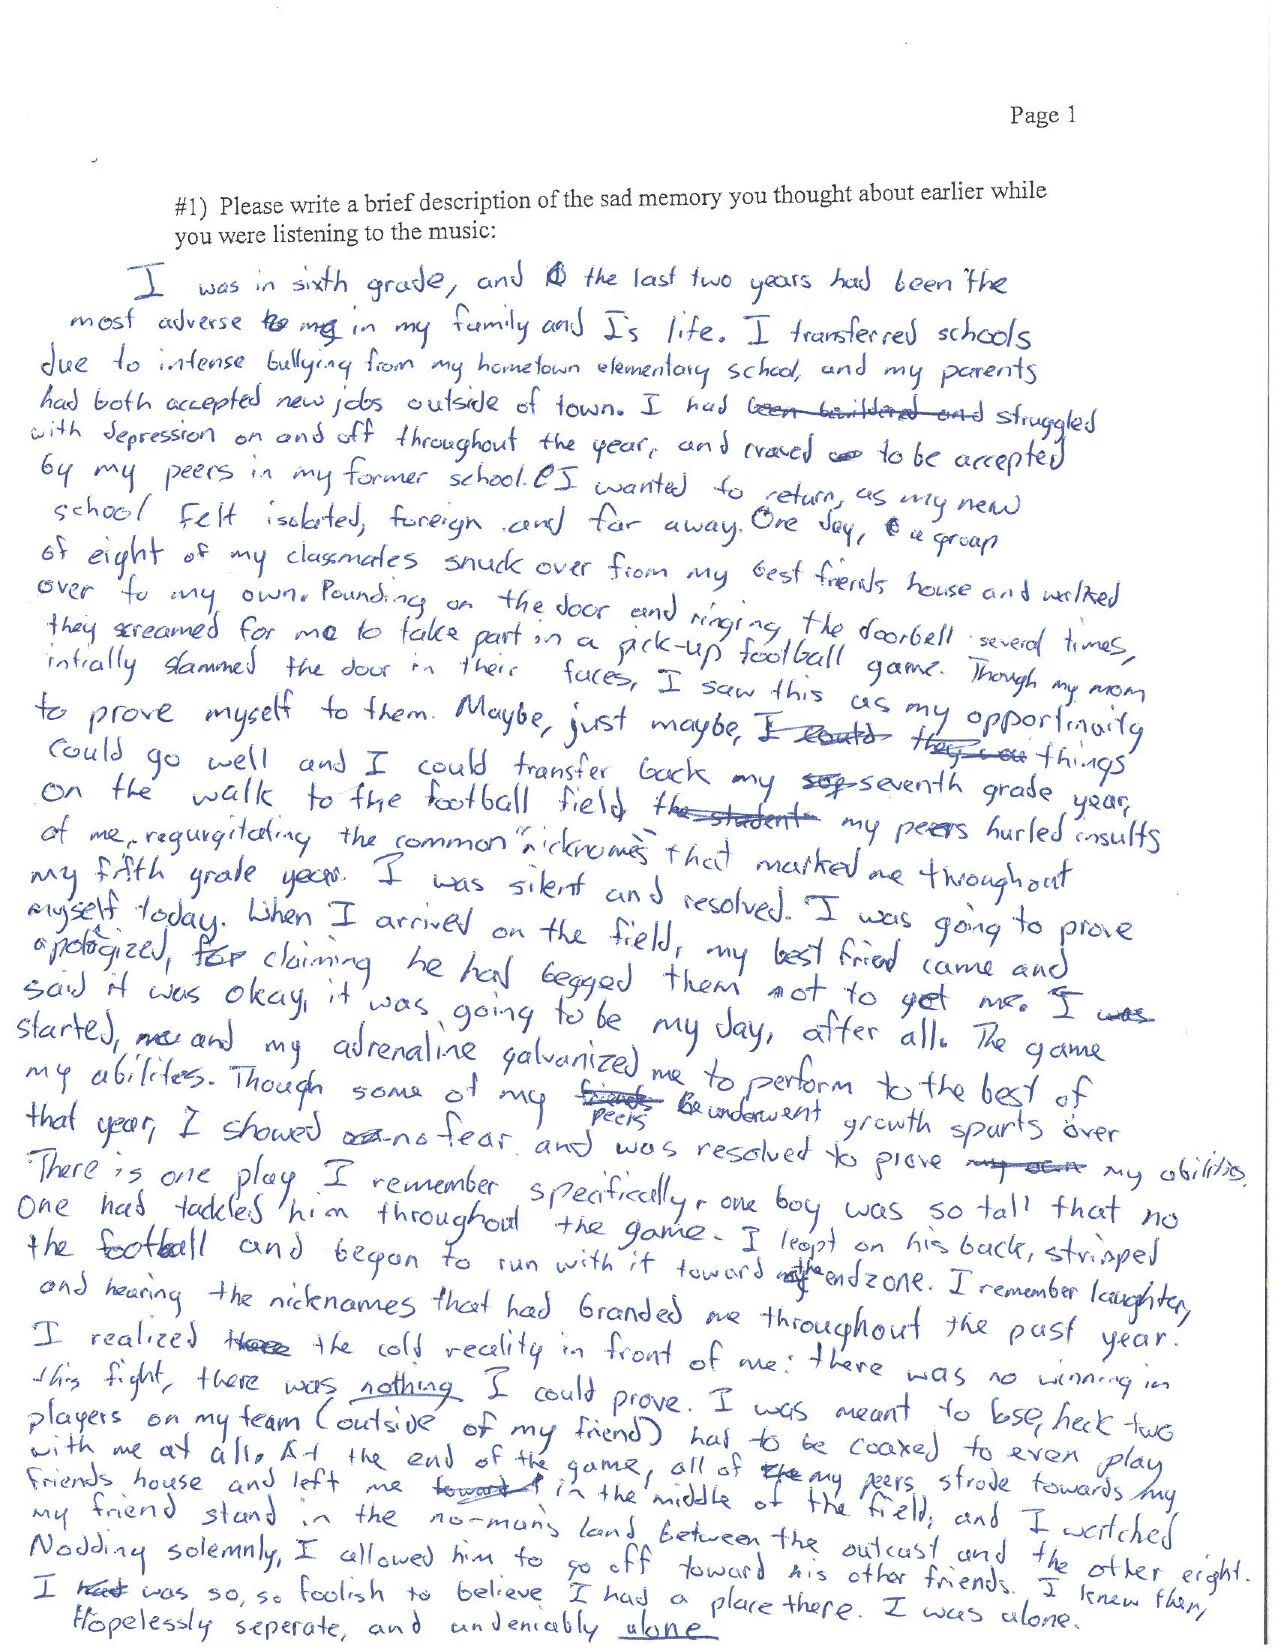 Page 1
#1) Please write a brief description of the sad memory you thought about earlier while
you were listening to the music:
I was in sixth grade, and the last two years had been the
most adverse to my in my family and I's life. I transferred schools
due to intense bullying from my hometown elementary school, and my parents
had both accepted new jobs outside of town. I had been bewildered and struggled
with depression on and off throughout the year, and craved to be accepted
by my peers in my former school. I wanted to return, as my new
school felt isolated, foreign and far away. One day, a group
of eight of my classmates snuck over from my best friends house and walked
over to my own. Pounding on the door and ringing the doorbell several times,
they screamed for me to take part in a pick-up football game. Though my mom
intially slammed the door in their faces, I saw this as my opportinuity
to prove myself to them. Maybe, just maybe, I could they cou things
could go well and I could transfer back my sep seventh grade year,
on the walk to the football field the student my peers hurled insults
at me, regurgitating the common "nicknames" that marked me throughout
my fifth grade year. I was silent and resolved. I was going to prove
myself today. When I arrived on the field, my best friend came and
apologized, for claiming he had begged them not to get me. I was
said it was okay, it was going to be my day, after all. The game
started, and my adrenaline galvanized me to perform to the best of
my abilites. Though some of my friends peers underwent growth spurts over
that year, I showed no fear and was resolved to prove my own my abilities.
There is one play I remember specifically, one boy was so tall that no
one had tackled him throughout the game. I leapt on his back, stripped
the football and began to run with it toward my the endzone. I remember laughter,
and hearing the nicknames that had branded me throughout the past year.
I realized there the cold reality in front of me: there was no winning in
this fight, there was nothing I could prove. I was meant to lose, heck two
players on my team (outside of my friend) had to be coaxed to even play
with me at all. At the end of the game, all of the my peers strode towards my
friends house and left me toward in the middle of the field, and I watched
my friend stand in the no-man's land between the outcast and the other eight.
Nodding solemnly, I allowed him to go off toward his other friends. I knew then,
I had was so, so foolish to believe I had a place there. I was alone.
Hopelessly seperate, and undeniably alone